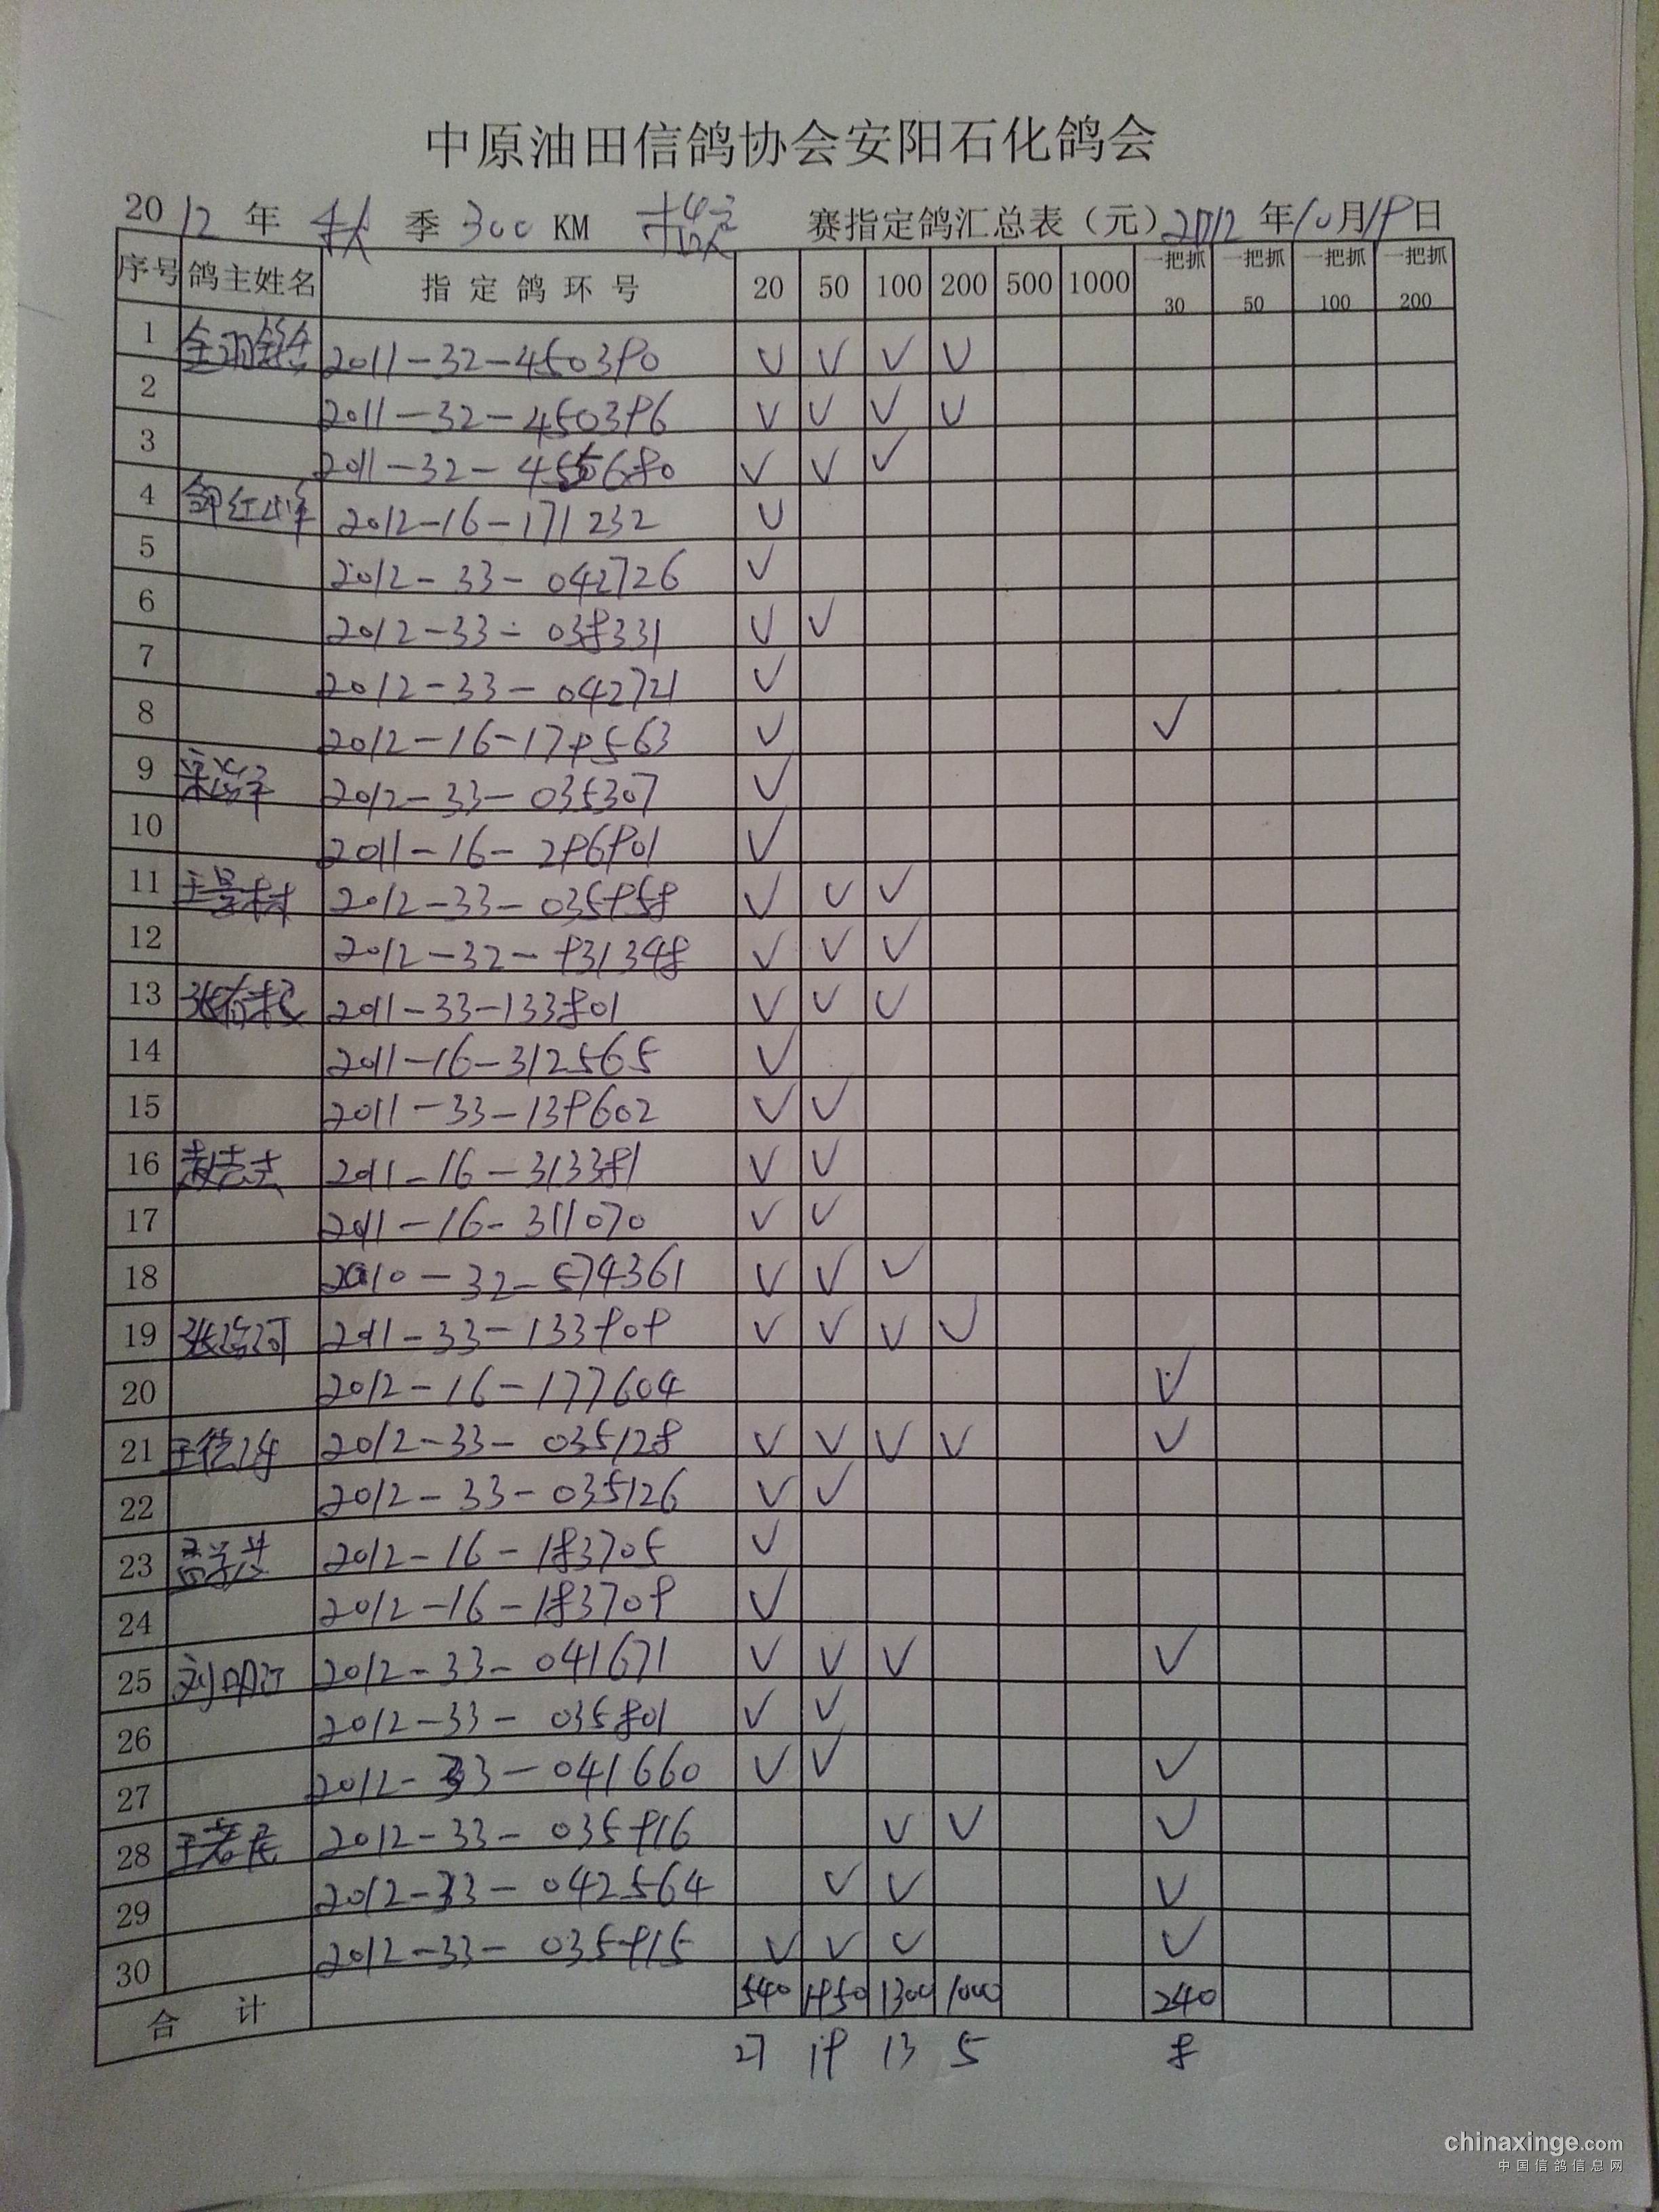 中原油田信鸽协会安阳石化鸽会
2012年 秋 季 300 KM 赛指定鸽汇总表（元）2012年10月19日
序号 鸽主姓名 指定鸽环号 20 50 100 200 500 1000 一把抓30 一把抓50 一把抓100 一把抓200
1 2011-32-450390 √ √ √ √
2 2011-32-450396 √ √ √ √
3 2011-32-455680 √ √ √
4 2012-16-171232 √
5 2012-33-042726 √
6 2012-33-038331 √ √
7 2012-33-042721 √
8 2012-16-179563 √ √
9 2012-33-035307 √
10 2011-16-296901 √
11 王景林 2012-33-035958 √ √ √
12 2012-32-931348 √ √ √
13 2011-33-133801 √ √ √
14 2011-16-312565 √
15 2011-33-139602 √ √
16 2011-16-313381 √ √
17 2011-16-311070 √ √
18 2010-32-574361 √ √ √
19 2011-33-133909 √ √ √ √
20 2012-16-177604 √
21 2012-33-035128 √ √ √ √ √
22 2012-33-035126 √ √
23 2012-16-183705 √
24 2012-16-183709 √
25 2012-33-041671 √ √ √ √
26 2012-33-035801 √ √
27 2012-33-041660 √ √ √
28 2012-33-035916 √ √ √
29 2012-33-042564 √ √ √
30 2012-33-035915 √ √ √ √
合计 540 1950 1300 1000 240
27 19 13 5 8
chinaxinge.com
中国信鸽信息网